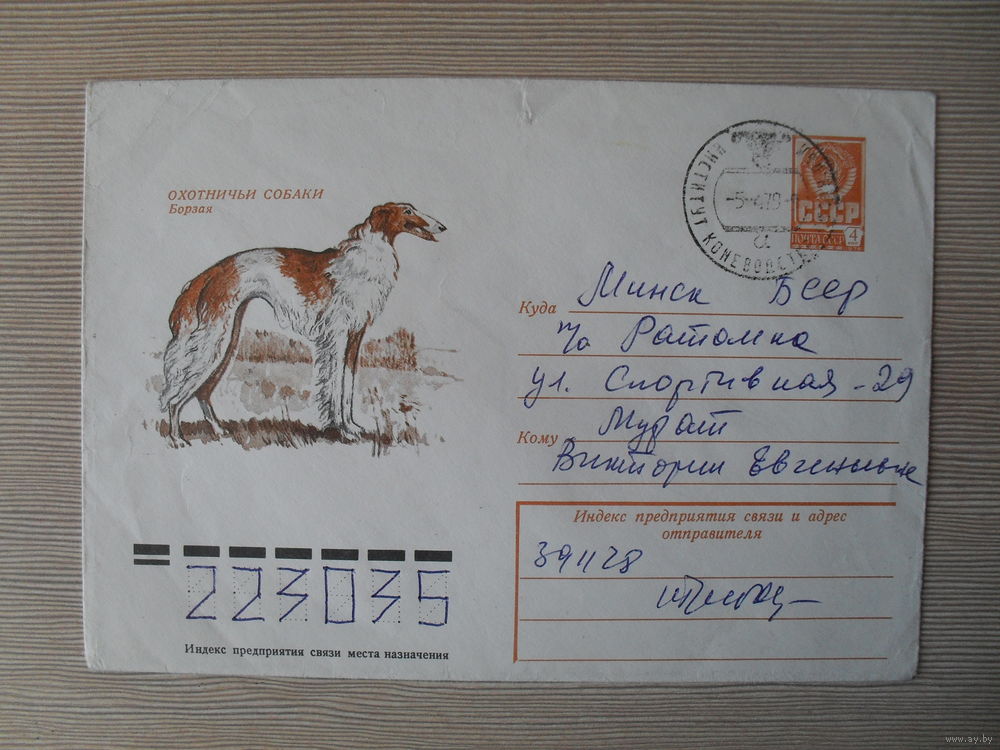 ОХОТНИЧЬИ СОБАКИ
Борзая
ИНСТИТУТ КОНЕВОДСТВА
-5-
СССР
ПОЧТА СССР 4
Куда Минск БССР
п/о Ратомка
ул. Спортивная - 29
Кому Мурат
Виктории Евгеньевне
Индекс предприятия связи и адрес
отправителя
391128
223035
Индекс предприятия связи места назначения
www.ay.by